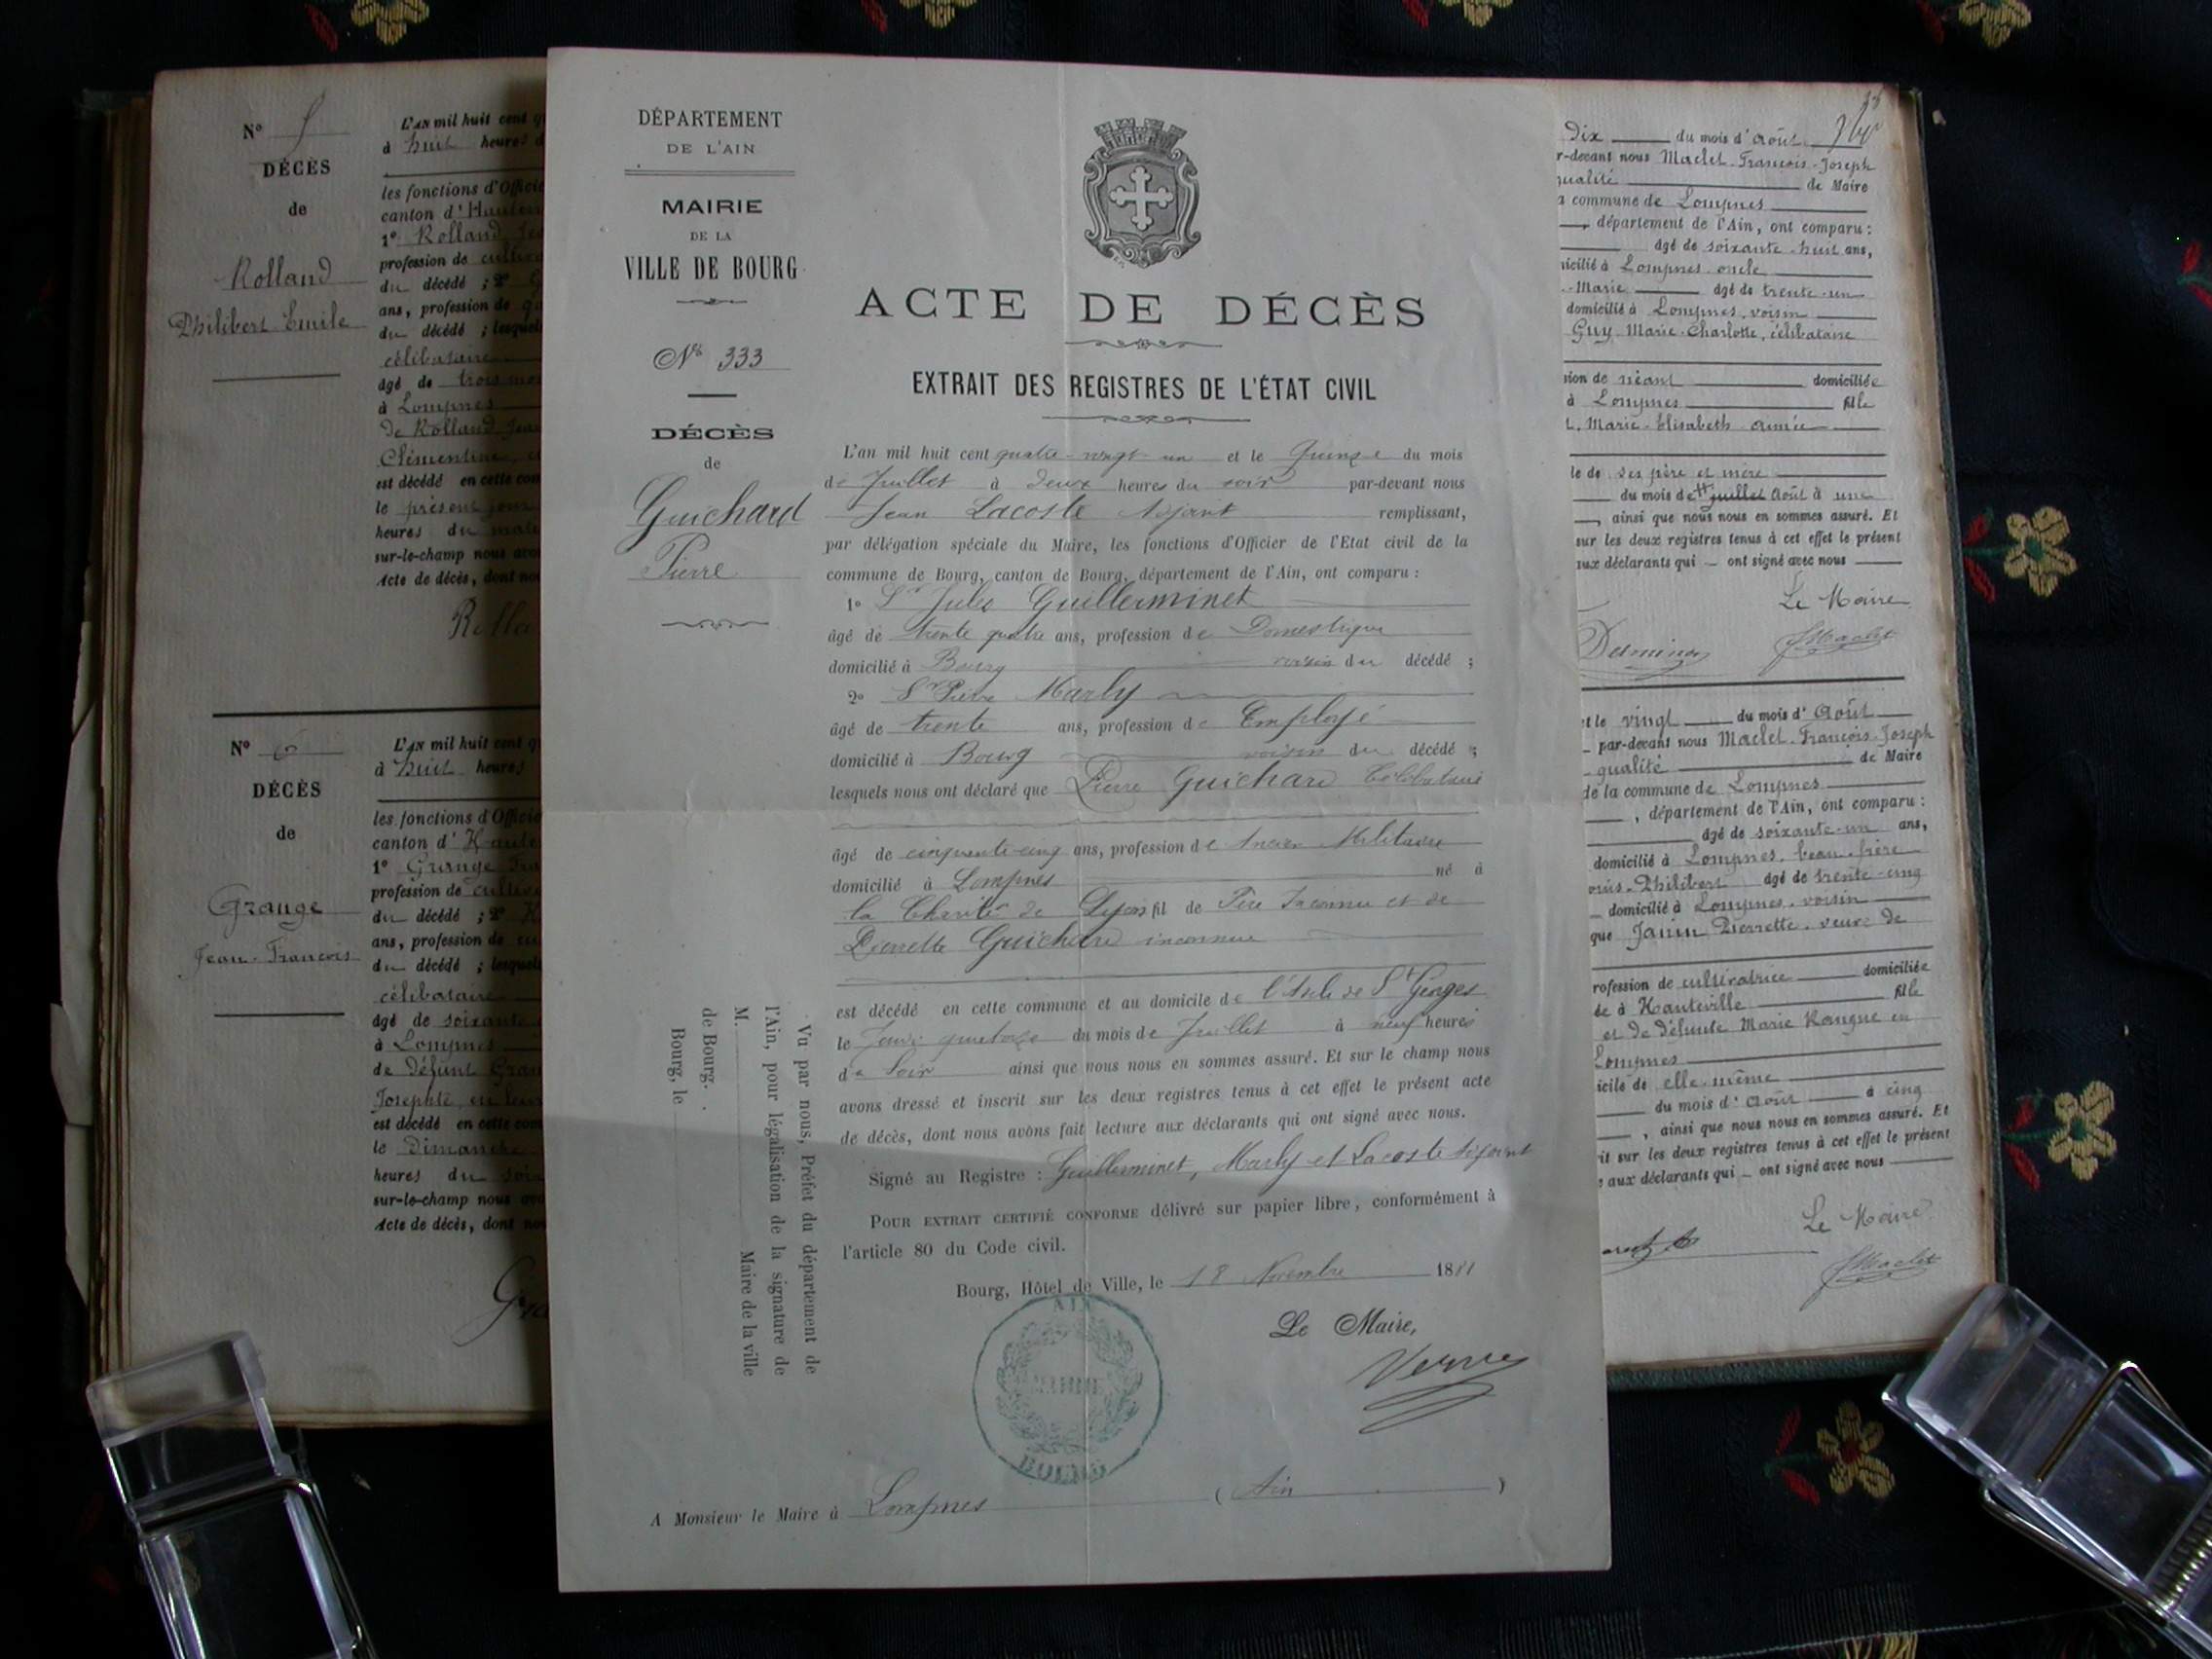 N° 5
DÉCÈS
de
Rolland
Philibert Emile
L'AN mil huit cent q
à huit heures d
les fonctions d'Officie
canton d'Hautev
1° Rolland Je
profession de cultiv
du décédé ; 2° G
ans, profession de
du décédé ; lesquel
célibataire
âgé de trois mo
à Lompnes
de Rolland Jea
Clémentine
est décédé en cette com
le présent jour
heures du mati
sur-le-champ nous avo
Acte de décès, dont no
Rolla
N° 6
DÉCÈS
de
Grange
Jean-François
L'AN mil huit cent q
à huit heures
les fonctions d'Officie
canton d'Haute
1° Grange Fra
profession de cultiv
du décédé ; 2° R
ans, profession de cu
du décédé ; lesquel
célibataire
âgé de soixante
à Lompnes
de défunt Gran
Josephte, en leur
est décédé en cette com
le Dimanche
heures du soir
sur-le-champ nous avo
Acte de décès, dont nou
Gra
DÉPARTEMENT
DE L'AIN
MAIRIE
DE LA
VILLE DE BOURG
N° 333
DÉCÈS
de
Guichard
Pierre
ACTE DE DÉCÈS
EXTRAIT DES REGISTRES DE L'ÉTAT CIVIL
L'an mil huit cent quatre-vingt-un et le Quinze du mois
de Juillet à deux heures du soir par-devant nous
Jean Lacoste Adjoint remplissant,
par délégation spéciale du Maire, les fonctions d'Officier de l'Etat civil de la
commune de Bourg, canton de Bourg, département de l'Ain, ont comparu :
1° Sr Jules Guillerminet
âgé de trente quatre ans, profession de Domestique
domicilié à Bourg voisin du décédé ;
2° Sr Pierre Marly
âgé de trente ans, profession de Employé
domicilié à Bourg voisin du décédé ;
lesquels nous ont déclaré que Pierre Guichard Célibataire
âgé de cinquante-cinq ans, profession de Ancien Militaire
domicilié à Lompnes né à
la Charité de Lyon fil de Père Inconnu et de
Pierrette Guichard inconnue
est décédé en cette commune et au domicile de l'Asile de St Georges
le Jeudi quatorze du mois de Juillet à neuf heures
du Soir ainsi que nous nous en sommes assuré. Et sur le champ nous
avons dressé et inscrit sur les deux registres tenus à cet effet le présent acte
de décès, dont nous avons fait lecture aux déclarants qui ont signé avec nous.
Signé au Registre : Guillerminet, Marly et Lacoste Adjoint
POUR EXTRAIT CERTIFIÉ CONFORME délivré sur papier libre, conformément à
l'article 80 du Code civil.
Bourg, Hôtel de Ville, le 18 Novembre 1881
Le Maire,
AIN
BOURG
A Monsieur le Maire à Lompnes (Ain)
Vu par nous, Préfet du département de
l'Ain, pour légalisation de la signature de
M. Maire de la ville
de Bourg.
Bourg, le
Dix du mois d'Août
r-devant nous Maclet François-Joseph
qualité de Maire
a commune de Lompnes
, département de l'Ain, ont comparu :
âgé de soixante-huit ans,
nicilié à Lompnes oncle
-Marie âgé de trente-un
domicilié à Lompnes, voisin
Guy Marie-Charlotte, célibataire
sion de néant domiciliée
à Lompnes fille
t. Marie-Elisabeth-Aimée
le de ses père et mère
du mois de juillet Août à une
, ainsi que nous nous en sommes assuré. Et
sur les deux registres tenus à cet effet le présent
aux déclarants qui - ont signé avec nous
Le Maire
FMaclet
et le vingt du mois d'Août
par-devant nous Maclet François-Joseph
qualité de Maire
de la commune de Lompnes
, département de l'Ain, ont comparu :
âgé de soixante-un ans,
domicilié à Lompnes, beau-frère
ouis-Philibert âgé de trente-cinq
domicilié à Lompnes, voisin
que Janin Pierrette, veuve de
rofession de cultivatrice domiciliée
ée à Hauteville fille
et de défunte Marie Rougne en
Lompnes
icile de elle-même
du mois d'Août à cinq
, ainsi que nous nous en sommes assuré. Et
rit sur les deux registres tenus à cet effet le présent
e aux déclarants qui - ont signé avec nous
Le Maire
FMaclet